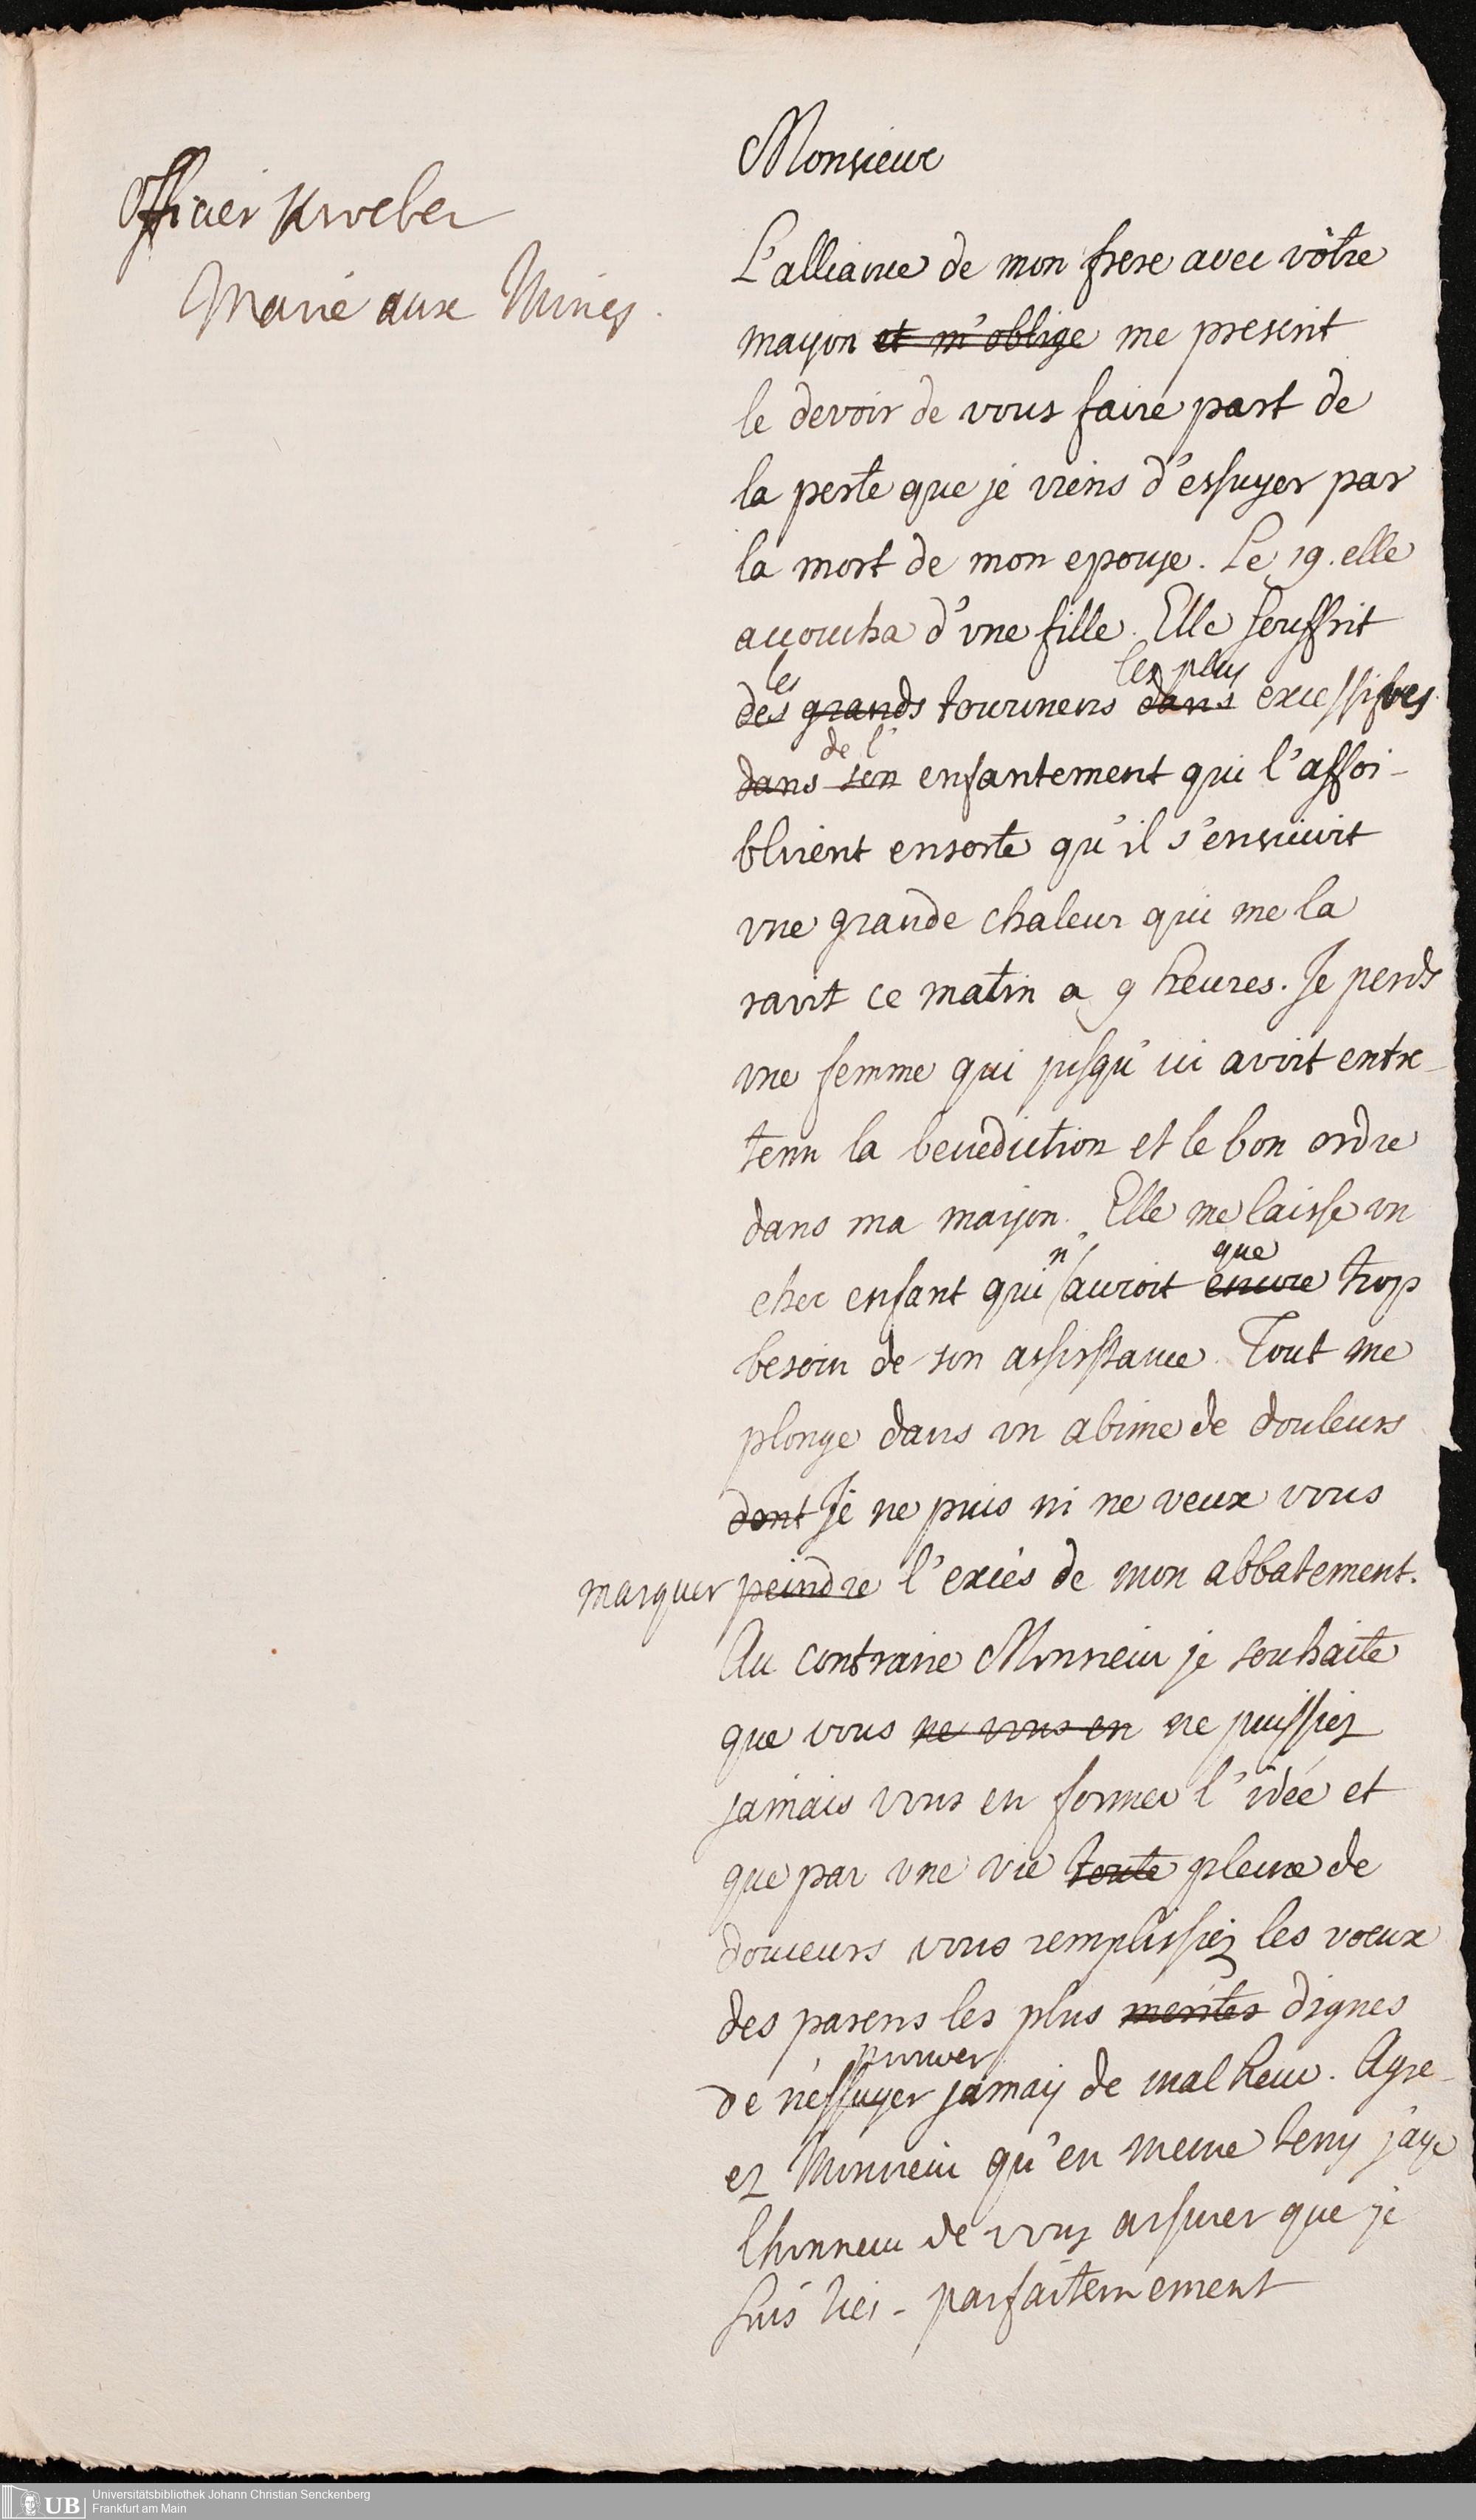 Officier Kroeber
Marie aux Mines.
Monsieur
L'alliance de mon frere avec vôtre
mayson et m'oblige me prescrit
le devoir de vous faire part de
la perte que je viens d'essuyer par
la mort de mon epouse. Le 19. elle
accoucha d'vne fille. Elle souffrit
les
les plus
des grands tourmens dans excessifves
de l'
dans son enfantement qui l'affoi-
blirent ensorte qu'il s'ensuivit
vne grande chaleur qui me la
ravit ce matin a 9 heures. Je perds
vne femme qui jusqu'ici avoit entre-
tenu la benediction et le bon ordre
dans ma mayson. Elle me laisse vn
n'
que
cher enfant qui auroit encore trop
besoin de son assistance. Tout me
plonge dans vn abime de douleurs
dont Je ne puis ni ne veux vous
marquer peindre l'excés de mon abbatement.
Au contraire Monsieur je souhaite
que vous ne vous en ne puissiez
jamais vous en former l'idée et
que par vne vie toute pleine de
douceurs vous remplissiez les voeux
des parens les plus merites dignes
de n'essuyer jamays de malheur. Agre-
ez Monsieur qu'en meme tems j'aye
lhonneur de vous assurer que je
suis tres-parfaitemement